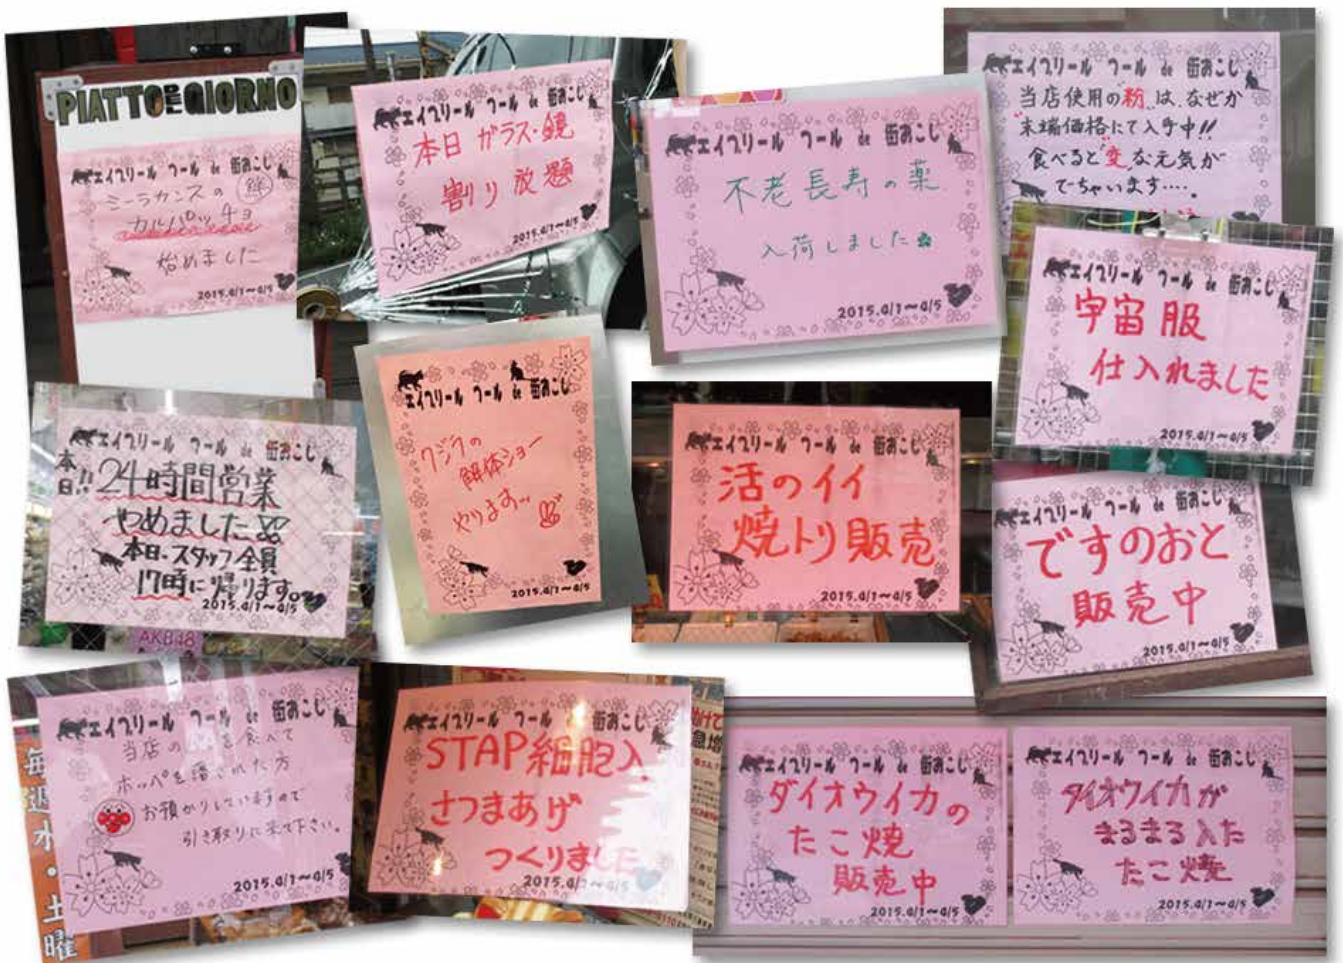 PIATTO DEL GIORNO
エイプリール フール de 街おこし
ミーラカンスの 鮮
カルパッチョ
始めました
2015.4/1〜4/5
エイプリール フール de 街おこし
本日 ガラス・鏡
割り放題
2015.4/1〜4/5
エイプリール フール de 街おこし
不老長寿の薬
入荷しました
2015.4/1〜4/5
エイプリール フール de 街おこし
当店使用の粉は、なぜか
"末端価格にて入手中!!
食べると"変"な元気が
でちゃいます‥‥。
エイプリール フール de 街おこし
宇宙服
仕入れました
2015.4/1〜4/5
エイプリール フール de 街おこし
本日!! 24時間営業
やめました
本日、スタッフ全員
17時に帰ります。
2015.4/1〜4/5
AKB48
エイプリール フール de 街おこし
クジラの
解体ショー
やります
2015.4/1〜4/5
エイプリール フール de 街おこし
活のイイ
焼トリ販売
2015.4/1〜4/5
エイプリール フール de 街おこし
ですのおと
販売中
2015.4/1〜4/5
エイプリール フール de 街おこし
当店の を食べて
ホッペを落された方
お預かりしていますので
引き取りに来て下さい。
2015.4/1〜4/5
毎週水・土曜
エイプリール フール de 街おこし
STAP細胞入
さつまあげ
つくりました
2015.4/1〜4/5
エイプリール フール de 街おこし
ダイオウイカの
たこ焼
販売中
2015.4/1〜4/5
エイプリール フール de 街おこし
ダイオウイカが
まるまる入た
たこ焼
2015.4/1〜4/5